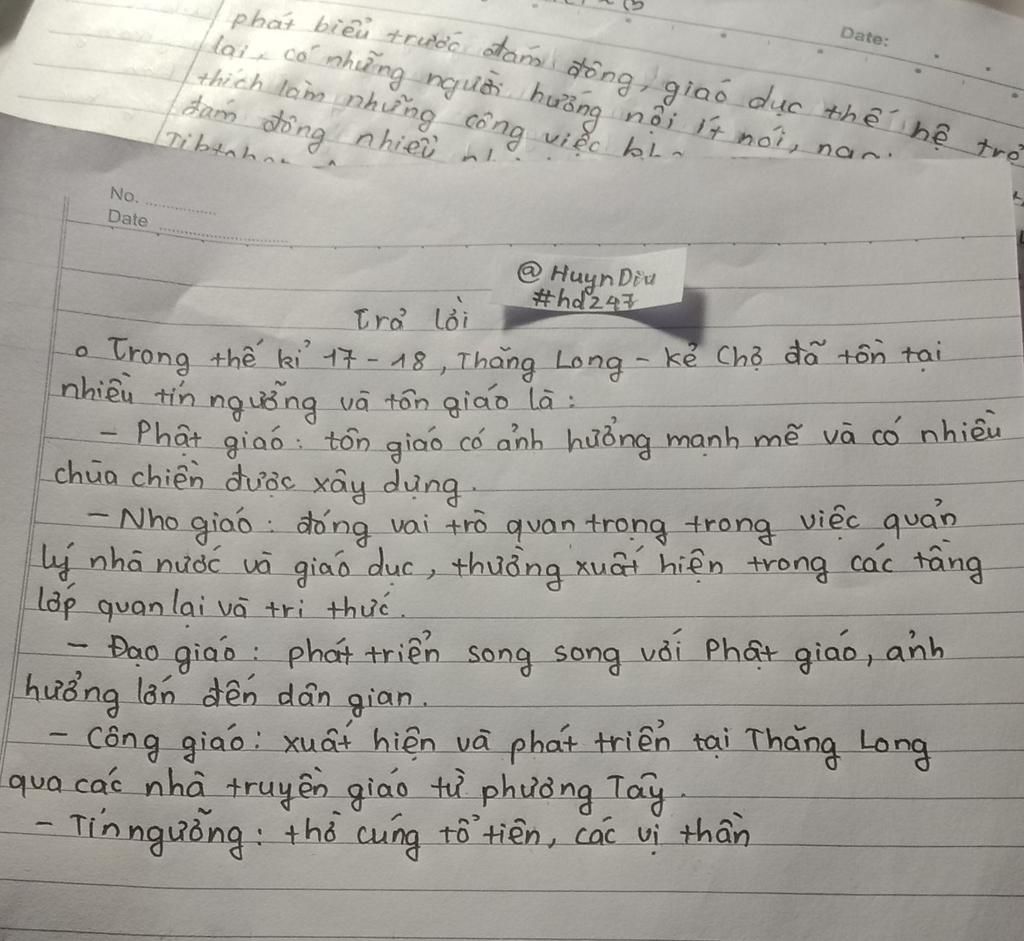 phát biểu trước đám đông, giáo dục thế hệ trẻ
lại, có những người hướng nội ít nói,
thích làm những công việc
đám đông nhiều
Date:
No.
Date
@HuynDiu
#hd247
Trả lời
o Trong thế kỉ 17-18, Thăng Long - Kẻ Chợ đã tồn tại
nhiều tín ngưỡng và tôn giáo là:
- Phật giáo: tôn giáo có ảnh hưởng mạnh mẽ và có nhiều
chùa chiền được xây dựng.
- Nho giáo: đóng vai trò quan trọng trong việc quản
lý nhà nước và giáo dục, thường xuất hiện trong các tầng
lớp quan lại và tri thức.
- Đạo giáo: phát triển song song với Phật giáo, ảnh
hưởng lớn đến dân gian.
- Công giáo: xuất hiện và phát triển tại Thăng Long
qua các nhà truyền giáo từ phương Tây.
- Tín ngưỡng: thờ cúng tổ tiên, các vị thần